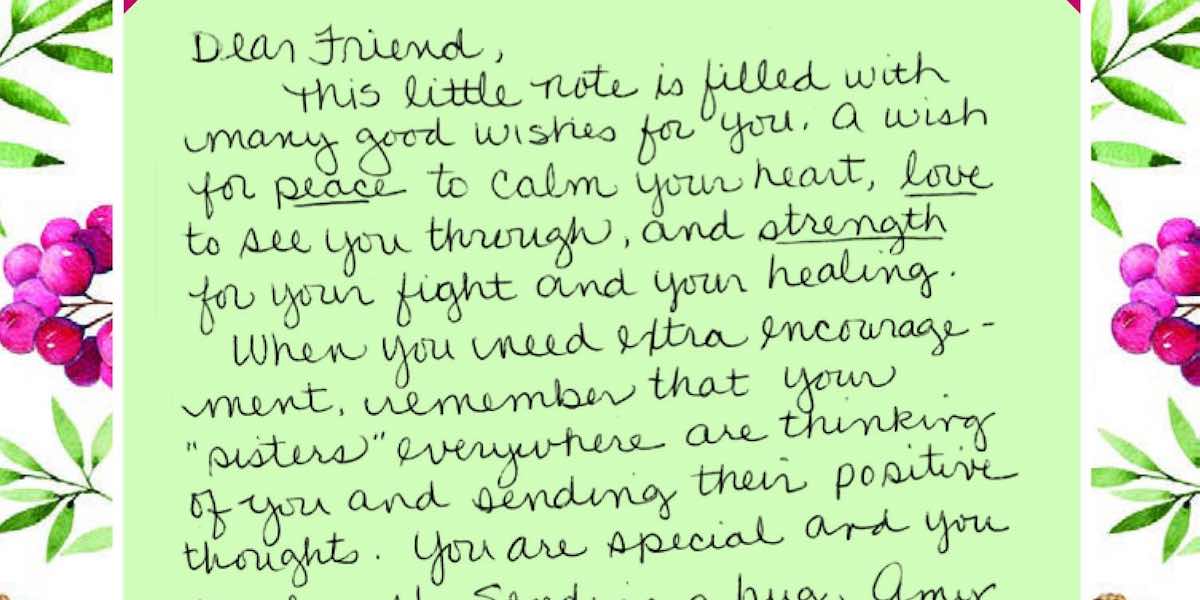 Dear Friend,
This little note is filled with
many good wishes for you. A wish
for peace to calm your heart, love
to see you through, and strength
for your fight and your healing.
When you need extra encourage-
ment, remember that your
"sisters" everywhere are thinking
of you and sending their positive
thoughts. You are special and you
Sending a hug,